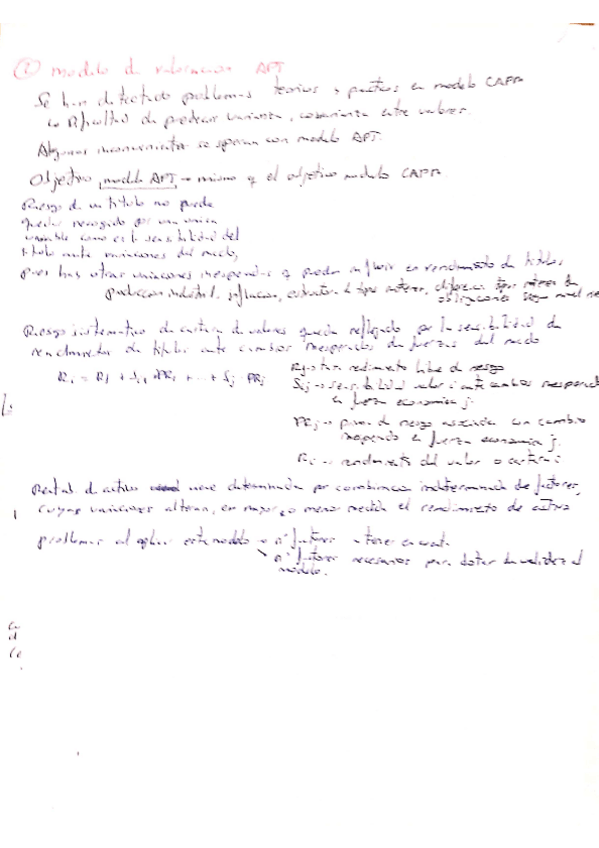 ② modelo de valoración APT
Se han detectado problemas teóricos y prácticos en modelo CAPM
↳ Dificultad de predecir varianza, covarianza entre valores.
Algunos inconvenientes se superan con modelo APT.
Objetivo modelo APT → mismo q el objetivo modelo CAPM
Riesgo de un título no puede
quedar recogido por una única
variable como es la sensibilidad del
título ante variaciones del mcdo,
pues hay otras variaciones inesperadas q pueden influir en rendimiento de títulos
producción industrial, inflación, estructura de tipos interés, diferencia tipos interés en
obligaciones según nivel
Riesgo sistemático de cartera de valores queda reflejado por la sensibilidad de
rendimientos de títulos ante cambios inesperados de fuerzas del mcdo
Ri = Rf + Si1 PR1 + ... + Sij PRj
Rf → tasa rendimiento libre de riesgo
Sij → sensibilidad valor i ante cambios inesperado
en fuerza económica j.
PRj → prima de riesgo asociada con cambio
inesperado en fuerza económica j.
Ri → rendimiento del valor o cartera i
Rentab. d activo viene determinada por combinación indeterminada de factores,
cuyas variaciones alteran, en mayor o menor medida el rendimiento de activo
problemas al aplicar este modelo → nº factores a tener en cuenta
↘ nº factores necesarios para dotar de validez al
modelo.